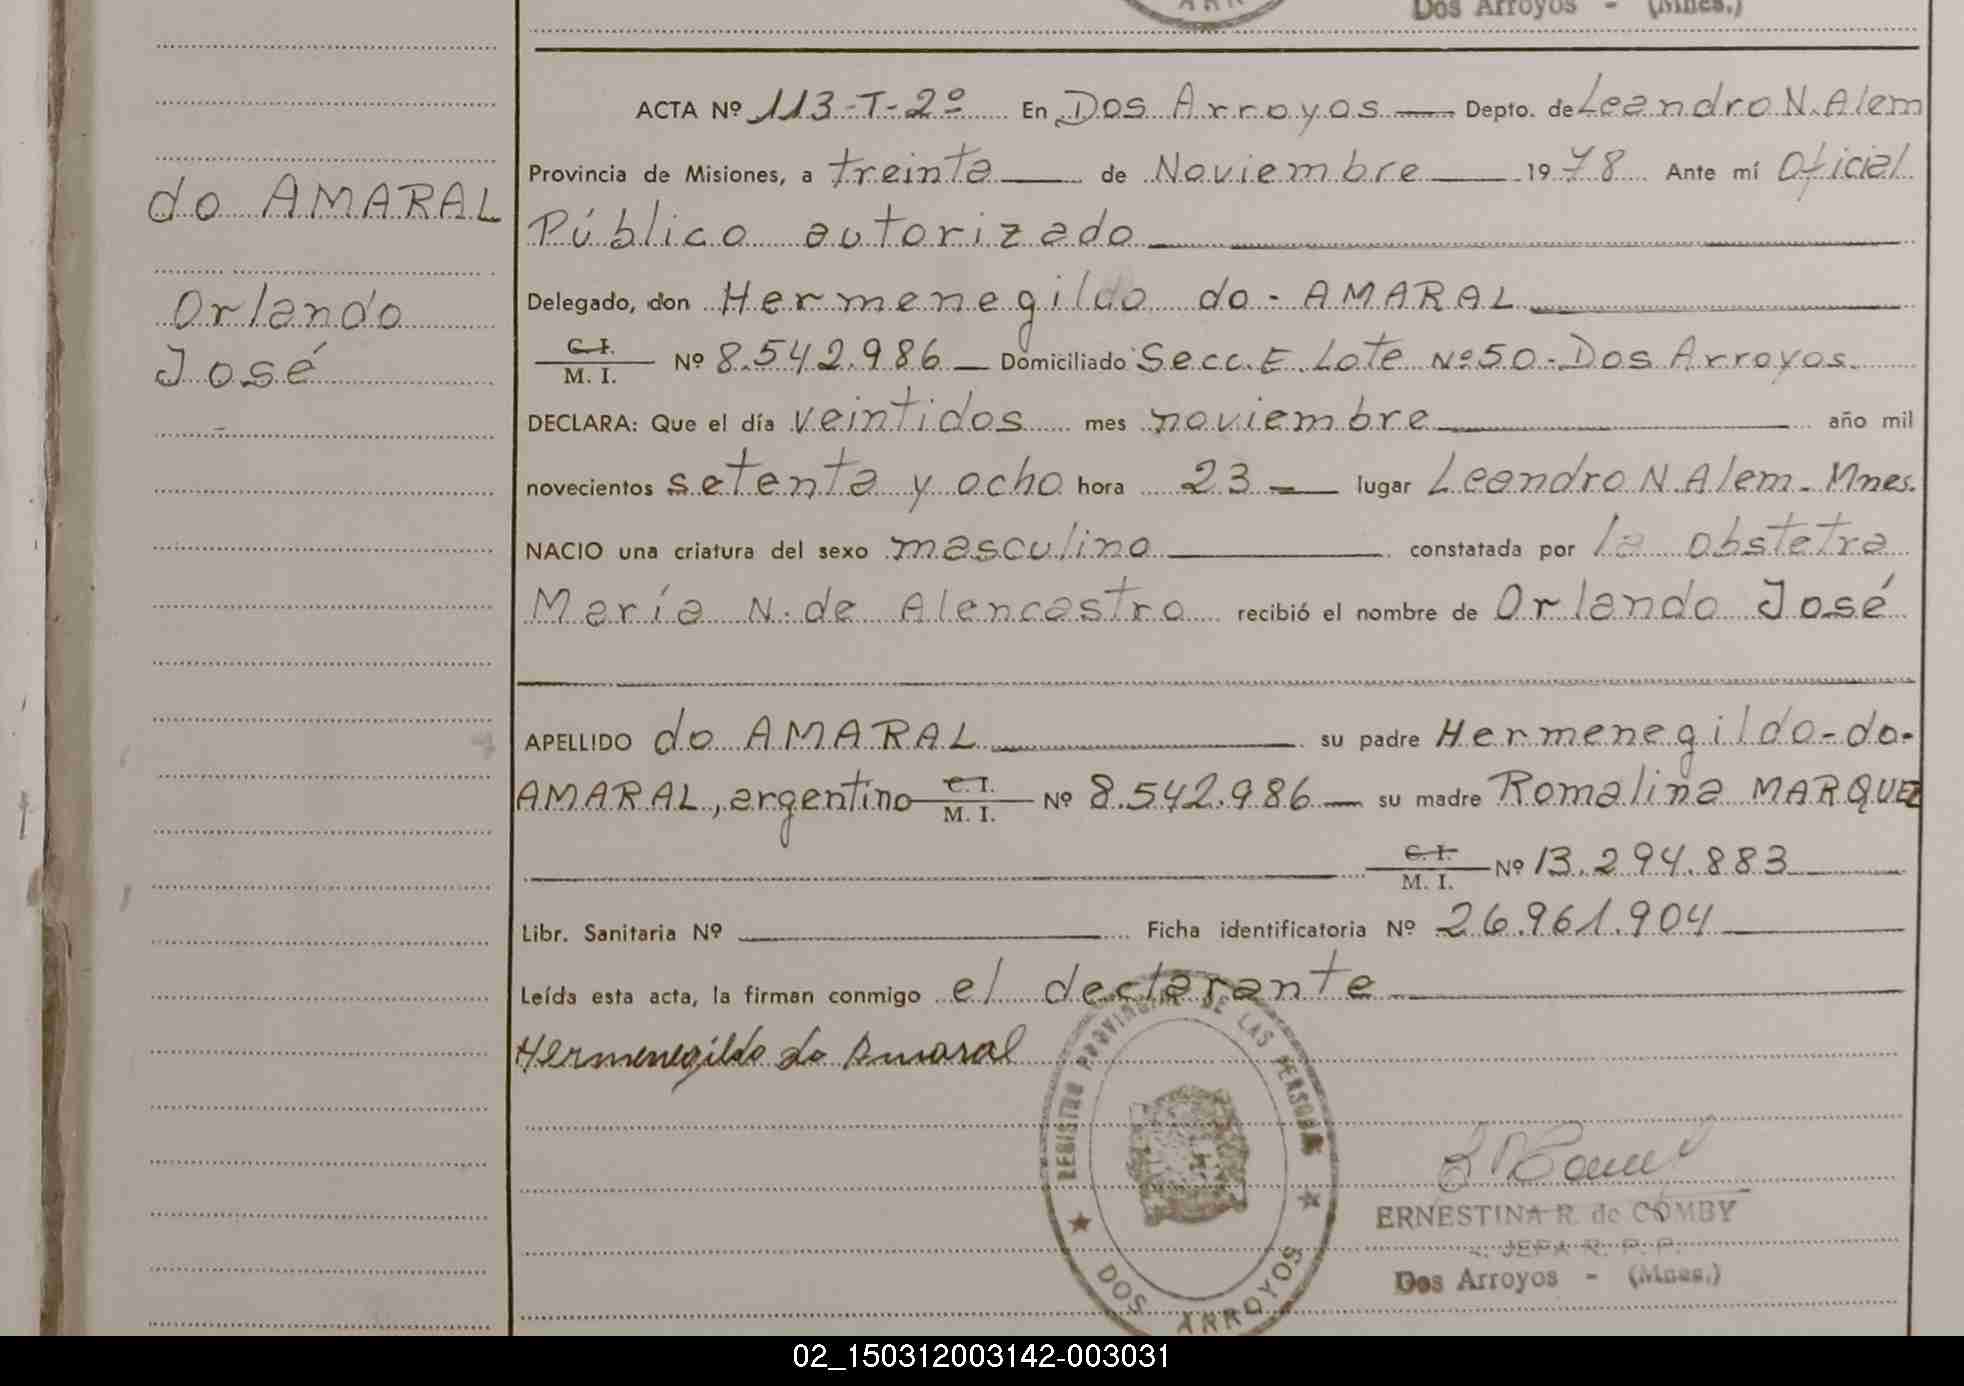 Dos Arroyos - (Mnes.)
ACTA Nº 113-T-2º En Dos Arroyos Depto. de Leandro N. Alem
Provincia de Misiones, a treinta de Noviembre 1978 Ante mí Oficial
Público autorizado
do AMARAL
Delegado, don Hermenegildo do - AMARAL
Orlando
José
C. I.
M. I. Nº 8.542.986 Domiciliado Secc. E. Lote Nº 50 - Dos Arroyos.
DECLARA: Que el día veintidos mes noviembre año mil
novecientos setenta y ocho hora 23 lugar Leandro N. Alem - Mnes.
NACIO una criatura del sexo masculino constatada por la obstetra
María N. de Alencastro recibió el nombre de Orlando José
APELLIDO do AMARAL su padre Hermenegildo - do -
AMARAL, argentino C. I. M. I. Nº 8.542.986 su madre Romalina MARQUEZ
C. I.
M. I. Nº 13.294.883
Libr. Sanitaria Nº Ficha identificatoria Nº 26.961.904
Leída esta acta, la firman conmigo el declarante
Hermenegildo do Amaral
REGISTRO PROVINCIAL DE LAS PERSONAS
DOS ARROYOS
ERNESTINA R. de COMBY
JEFA R. P. P.
Dos Arroyos - (Mnes.)
02_150312003142-003031